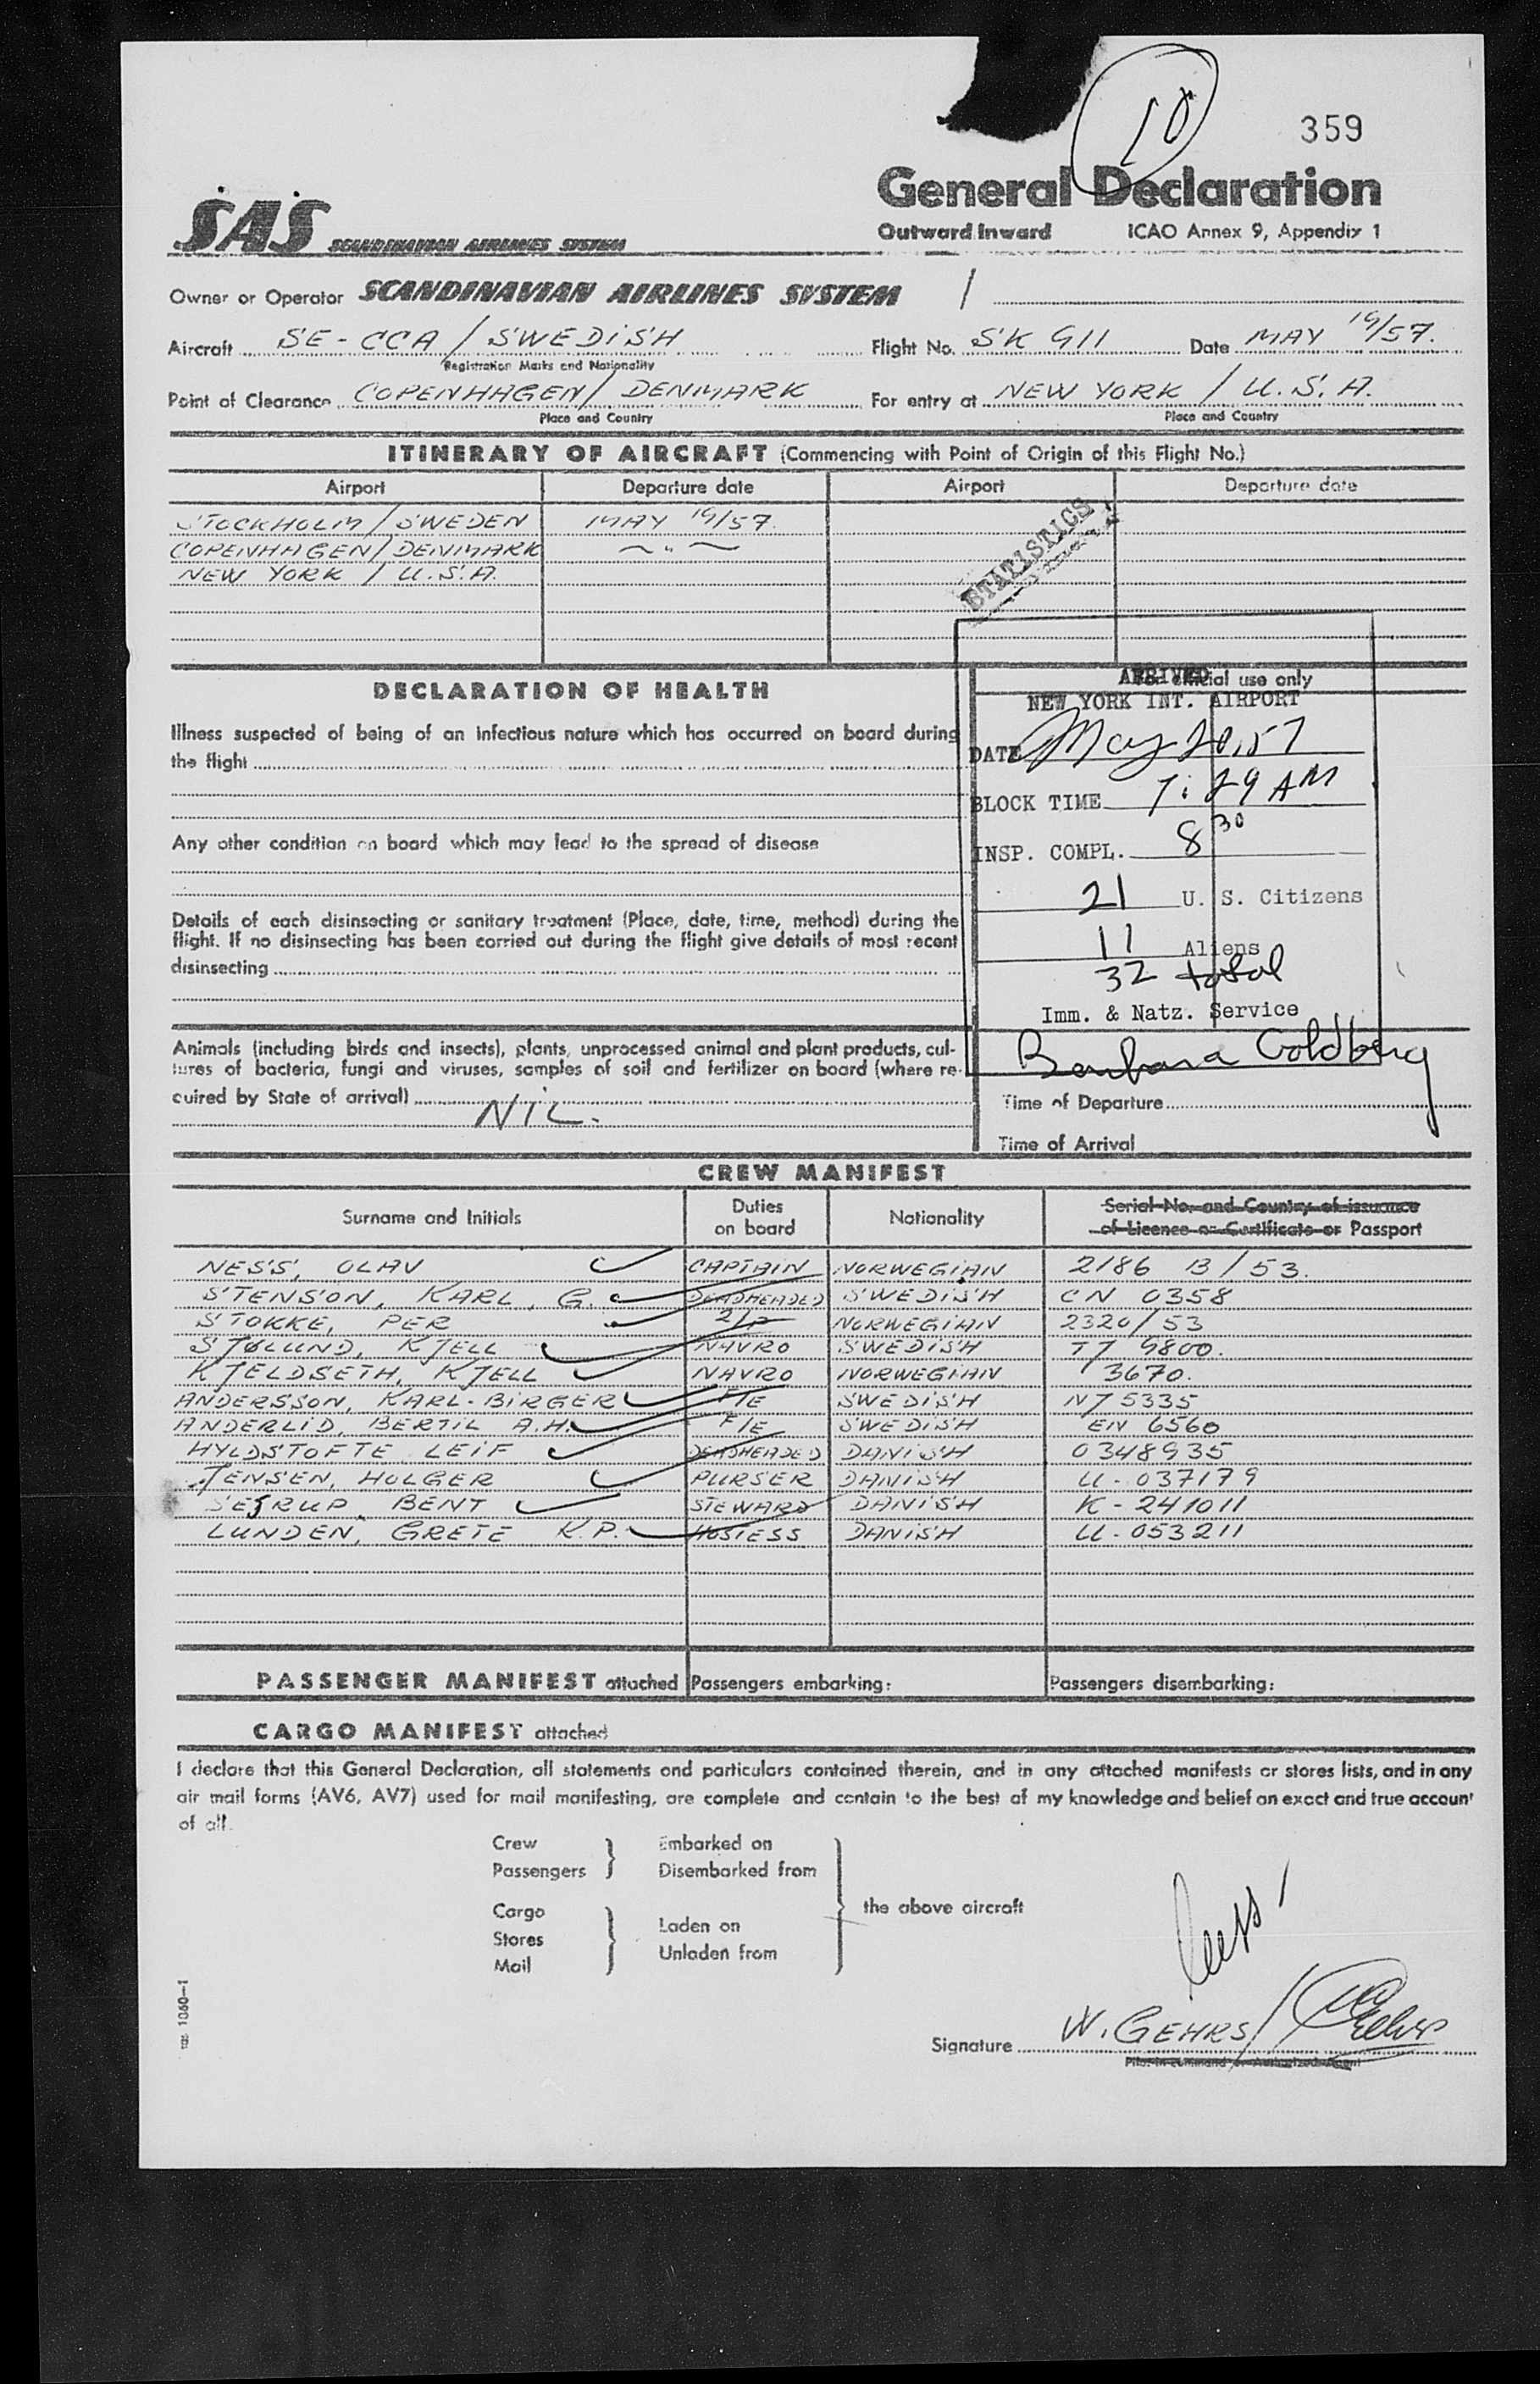 10
359
General Declaration
Outward Inward ICAO Annex 9, Appendix 1
SAS SCANDINAVIAN AIRLINES SYSTEM
Owner or Operator SCANDINAVIAN AIRLINES SYSTEM /
Aircraft SE-CCA / SWEDISH Flight No. SK 911 Date MAY 19/57.
Registration Marks and Nationality
Point of Clearance COPENHAGEN / DENMARK For entry at NEW YORK / U.S.A.
Place and Country Place and Country
ITINERARY OF AIRCRAFT (Commencing with Point of Origin of this Flight No.)
Airport Departure date Airport Departure date
STOCKHOLM / SWEDEN MAY 19/57.
COPENHAGEN / DENMARK ~ " ~
NEW YORK / U.S.A.
STATISTICS
DECLARATION OF HEALTH
For official use only
ARRIVED
NEW YORK INT. AIRPORT
Illness suspected of being of an infectious nature which has occurred on board during
the flight
DATE May 20, 57
BLOCK TIME 7:29 AM
Any other condition on board which may lead to the spread of disease
INSP. COMPL. 8 30
21 U. S. Citizens
Details of each disinsecting or sanitary treatment (Place, date, time, method) during the
flight. If no disinsecting has been carried out during the flight give details of most recent
disinsecting
11 Aliens
32 total
Imm. & Natz. Service
Barbara Goldberg
Animals (including birds and insects), plants, unprocessed animal and plant products, cul-
tures of bacteria, fungi and viruses, samples of soil and fertilizer on board (where re-
quired by State of arrival) NIL.
Time of Departure
Time of Arrival
CREW MANIFEST
Surname and Initials Duties on board Nationality Serial No. and Country of issuance of Licence or Certificate or Passport
NESS, OLAV CAPTAIN NORWEGIAN 2186 B/53.
STENSON, KARL, G. DEADHEADED SWEDISH CN 0358
STOKKE, PER 2/P NORWEGIAN 2320/53
SJØLUND, KJELL NAVRO SWEDISH TJ 9800.
KJELDSETH, KJELL NAVRO NORWEGIAN 3670.
ANDERSSON, KARL-BIRGER F/E SWEDISH NJ 5335
ANDERLID, BERTIL A.H. F/E SWEDISH EN 6560
HYLDSTOFTE LEIF DEADHEADED DANISH 0348935
JENSEN, HOLGER PURSER DANISH U-037179
SEJRUP, BENT STEWARD DANISH K-241011
LUNDEN, GRETE K.P. HOSTESS DANISH U-053211
PASSENGER MANIFEST attached Passengers embarking: Passengers disembarking:
CARGO MANIFEST attached
I declare that this General Declaration, all statements and particulars contained therein, and in any attached manifests or stores lists, and in any
air mail forms (AV6, AV7) used for mail manifesting, are complete and contain to the best of my knowledge and belief an exact and true account
of all.
Crew Embarked on
Passengers Disembarked from
the above aircraft
Cargo Laden on
Stores
Unladen from
Mail
1060-1
Signature W. GEHRS / Gehrs
Pilot-in-command or Authorized Agent